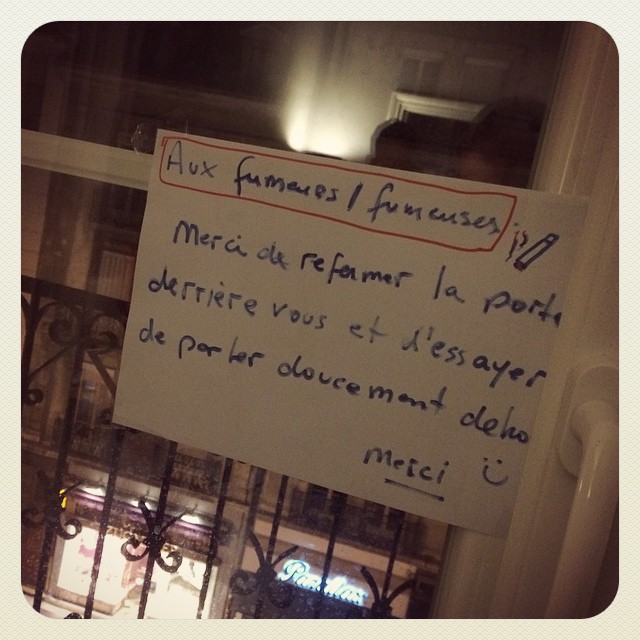 Aux fumeurs / fumeuses
Merci de refermer la porte
derrière vous et d'essayer
de parler doucement deho
Merci